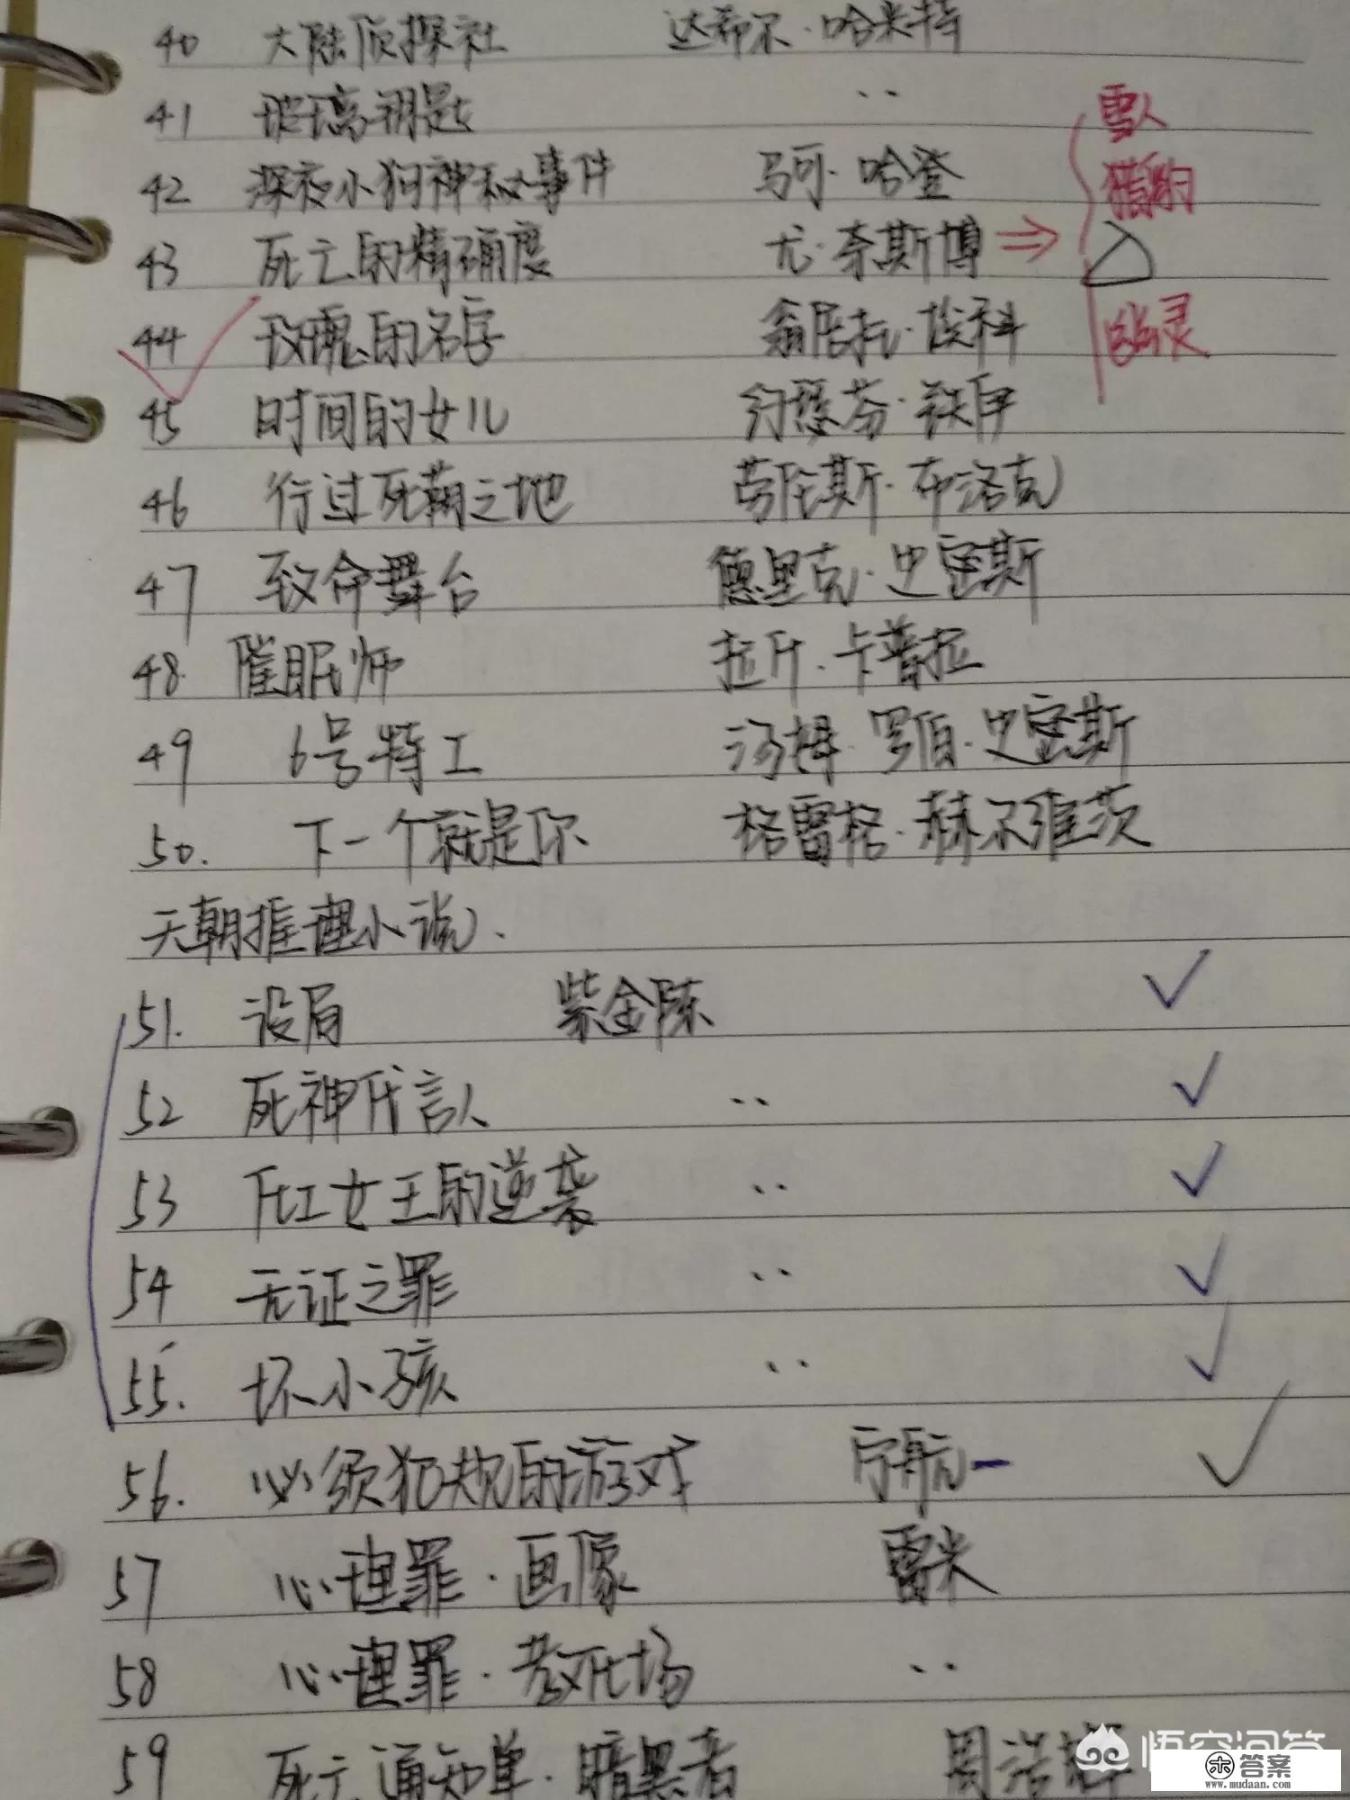 40 大陆侦探社 达希尔·哈米特
41 玻璃钥匙 ··
雪人
42 深夜小狗神秘事件 马可·哈登
猎豹
43 死亡的精确度 尤·奈斯博 ⇒
44 玫瑰的名字 翁贝托·埃科
幽灵
45 时间的女儿 约瑟芬·铁伊
46 行过死荫之地 劳伦斯·布洛克
47 致命舞台 德里克·史密斯
48. 催眠师 拉斤·卡普拉
49 6号特工 汤姆·罗伯·史密斯
50. 下一个就是你 格雷格·赫尔维茨
天朝推理小说.
51. 设局 紫金陈 ✓
52 死神代言人 ·· ✓
53 化工女王的逆袭 ·· ✓
54 无证之罪 ·· ✓
55. 坏小孩 ·· ✓
56. 必须犯规的游戏 宁航一 ✓
57 心理罪·画像 雷米
58 心理罪·教化场 ··
59 死亡通知单·暗黑者 周浩晖
悟空问答
答案
www.mudaan.com